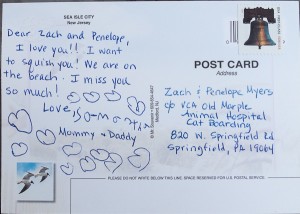 SEA ISLE CITY
New Jersey
Dear Zach and Penelope,
I love you!! I want
to squish you! We are on
the beach. I miss you
so much!
Love,
Mommy + Daddy
POST CARD
Address
Zach & Penelope Myers
c/o VCA Old Marple
Animal Hospital
Cat Boarding
820 W. Springfield Rd
Springfield, PA 19064
PLEASE DO NOT WRITE BELOW THIS LINE. SPACE RESERVED FOR U.S. POSTAL SERVICE.